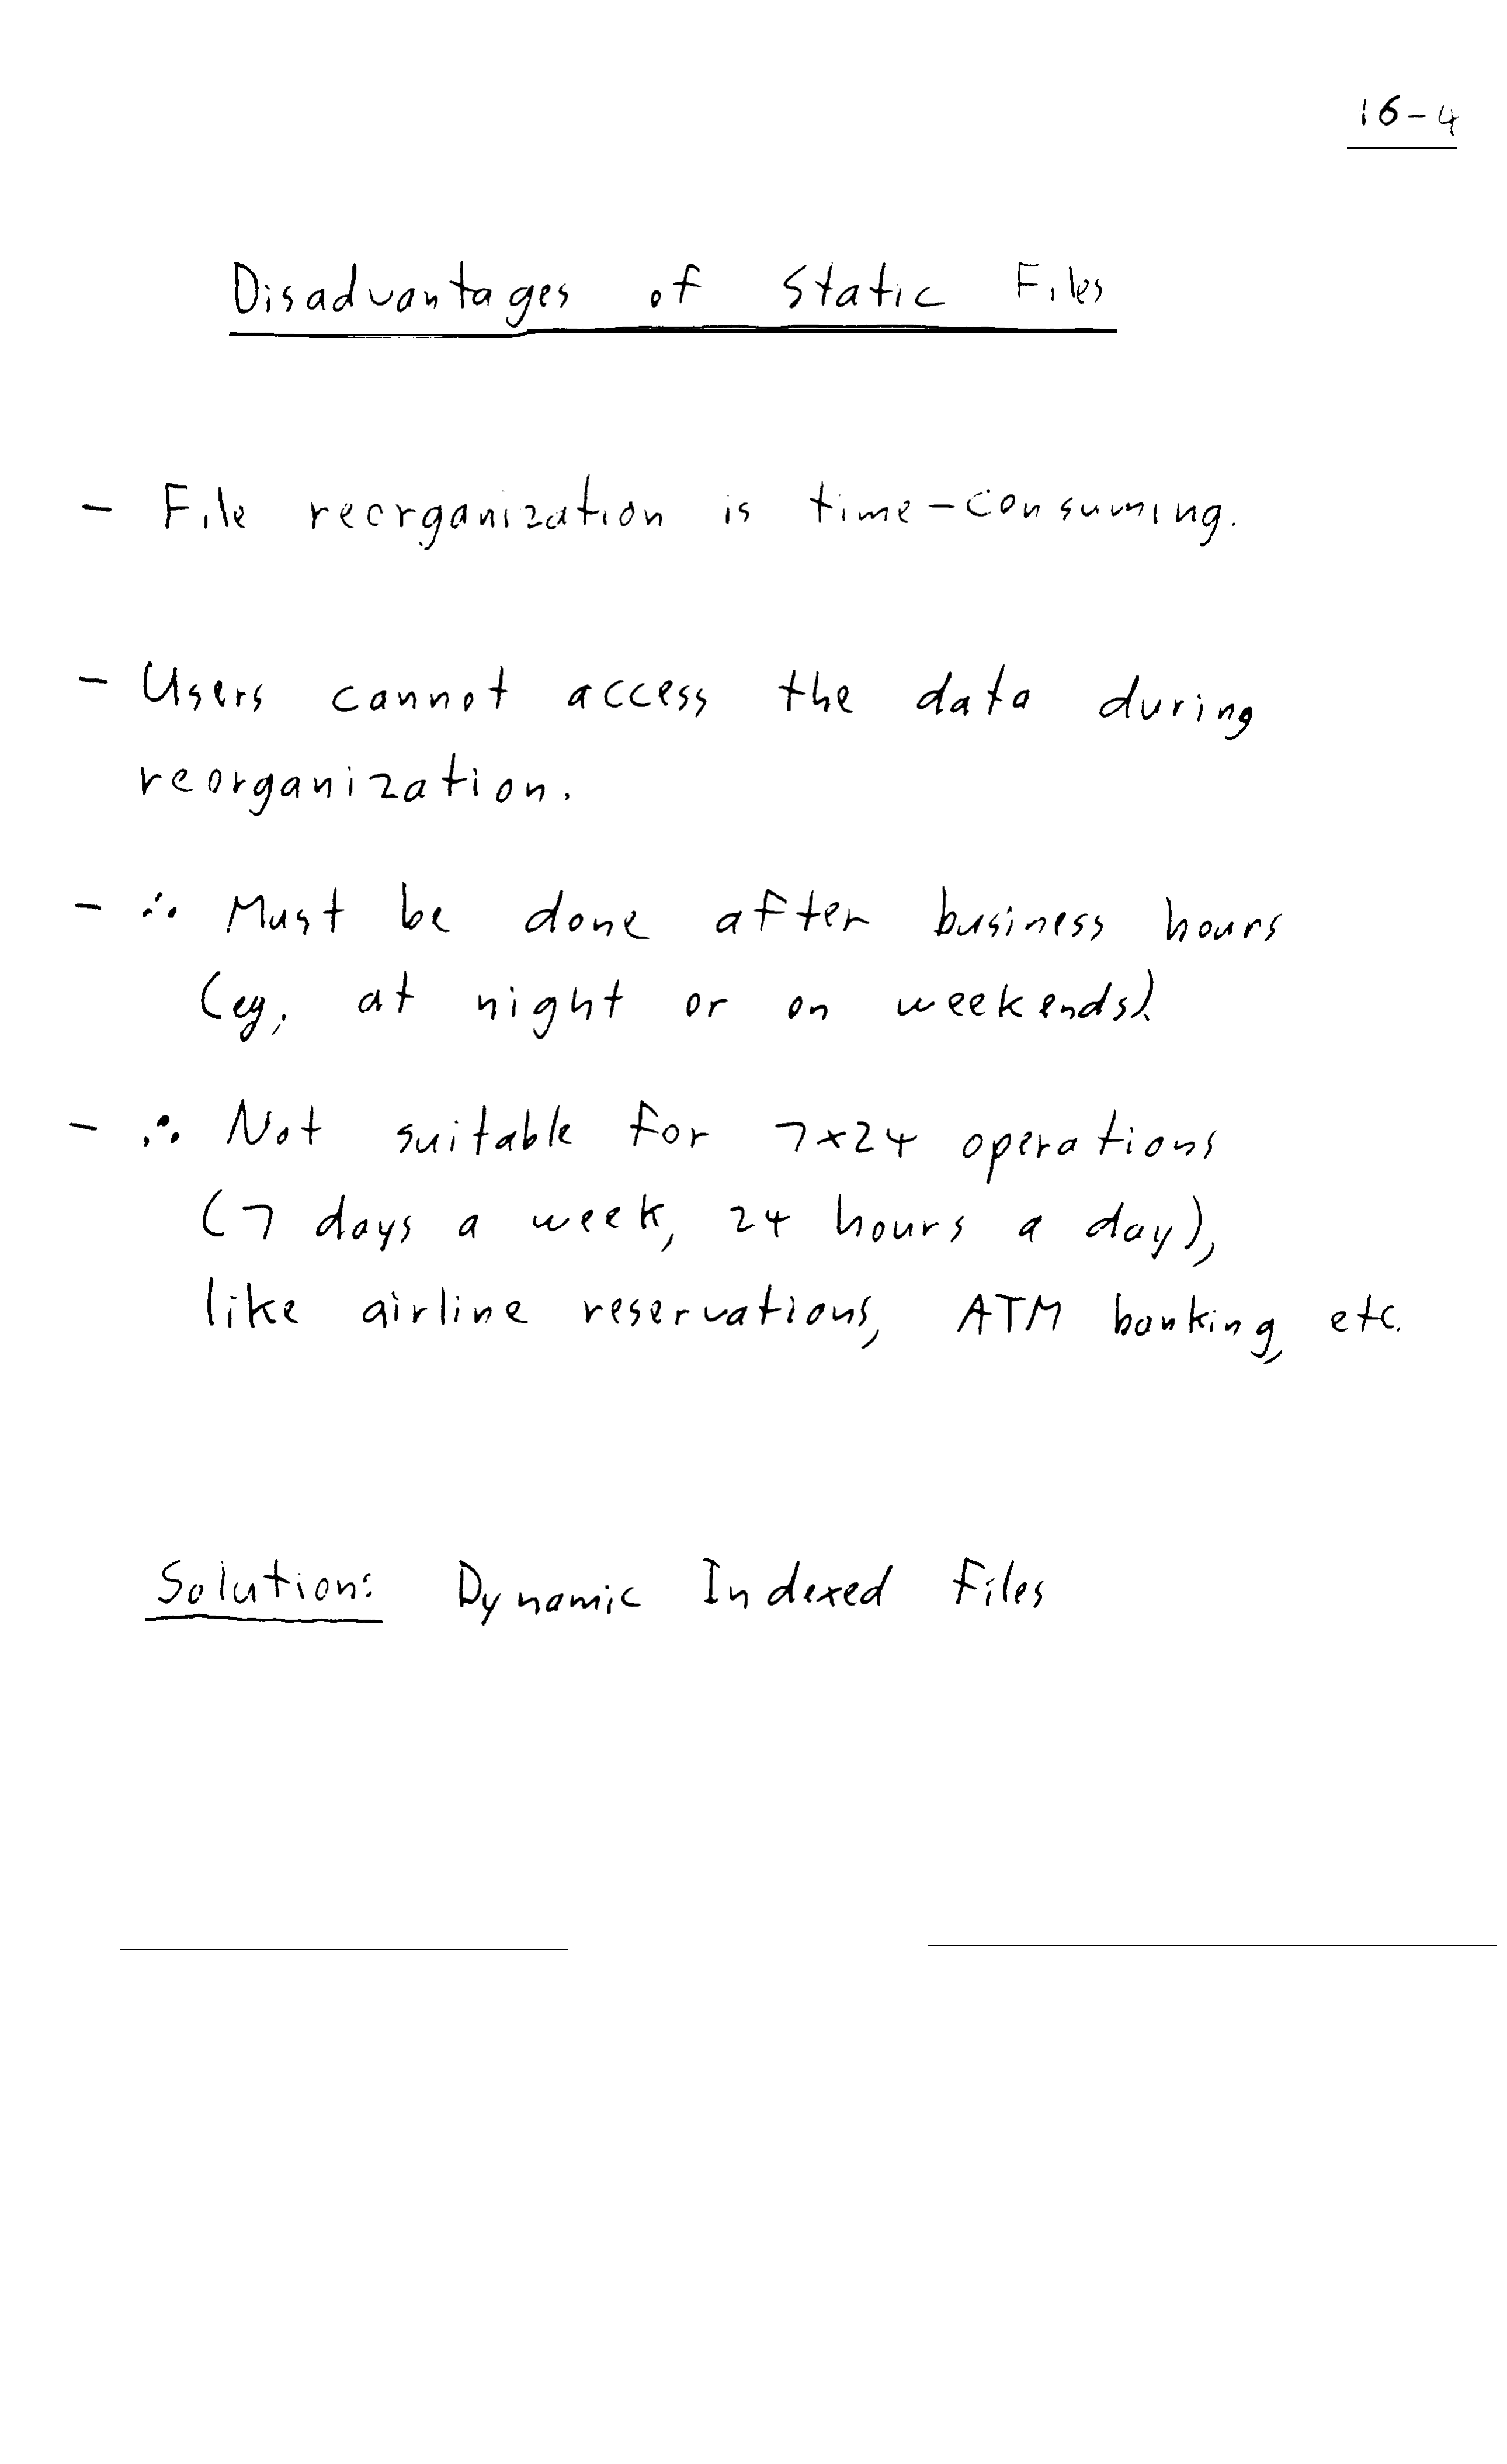 16-4
Disadvantages of Static Files
- File reorganization is time-consuming.
- Users cannot access the data during
reorganization.
- ∴ Must be done after business hours
(eg, at night or on weekends).
- ∴ Not suitable for 7x24 operations
(7 days a week, 24 hours a day),
like airline reservations, ATM banking, etc.
Solution: Dynamic Indexed Files